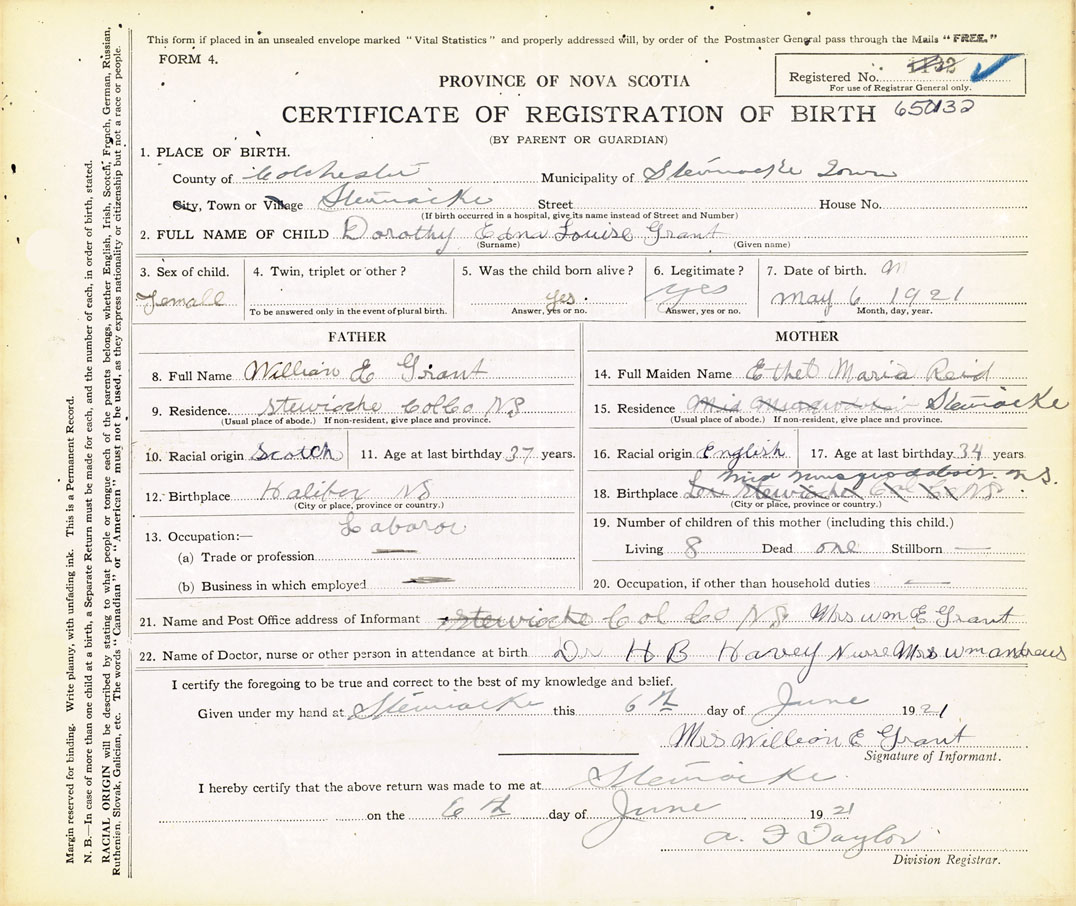 This form if placed in an unsealed envelope marked "Vital Statistics" and properly addressed will, by order of the Postmaster General pass through the Mails "FREE."
FORM 4.
Registered No.
For use of Registrar General only.
PROVINCE OF NOVA SCOTIA
CERTIFICATE OF REGISTRATION OF BIRTH
(BY PARENT OR GUARDIAN)
1. PLACE OF BIRTH.
County of Colchester Municipality of Stewiacke Town
City, Town or Village Stewiacke Street House No.
(If birth occurred in a hospital, give its name instead of Street and Number)
2. FULL NAME OF CHILD Dorothy Edna Louise Grant
(Surname) (Given name)
3. Sex of child. 4. Twin, triplet or other? 5. Was the child born alive? 6. Legitimate? 7. Date of birth. M
Female yes. yes May 6 1921
To be answered only in the event of plural birth. Answer, yes or no. Answer, yes or no. Month, day, year.
FATHER
8. Full Name William E Grant
9. Residence. Stewiacke Col Co NS
(Usual place of abode.) If non-resident, give place and province.
10. Racial origin Scotch 11. Age at last birthday 37 years.
12. Birthplace Halifax NS
(City or place, province or country.)
13. Occupation:— Labaror
(a) Trade or profession
(b) Business in which employed
MOTHER
14. Full Maiden Name Ethel Maria Reid
15. Residence Stewiacke
(Usual place of abode.) If non-resident, give place and province.
16. Racial origin English 17. Age at last birthday 34 years.
Mid Musquodoboit N.S.
18. Birthplace Stewiacke Col Co NS
(City or place, province or country.)
19. Number of children of this mother (including this child.)
Living 8 Dead one Stillborn —
20. Occupation, if other than household duties —
21. Name and Post Office address of Informant Stewiacke Col Co NS Mrs Wm E Grant
22. Name of Doctor, nurse or other person in attendance at birth Dr H B Havey Nurse Mrs Wm Andrews
I certify the foregoing to be true and correct to the best of my knowledge and belief.
Given under my hand at Stewiacke this 6th day of June 1921
Mrs William E Grant
Signature of Informant.
I hereby certify that the above return was made to me at Stewiacke
on the 6th day of June 1921
A. F Taylor
Division Registrar.
Margin reserved for binding. Write plainly, with unfading ink. This is a Permanent Record.
N. B.—In case of more than one child at a birth, a Separate Return must be made for each, and the number of each, in order of birth, stated.
RACIAL ORIGIN will be described by stating to what people or tongue each of the parents belongs, whether English, Irish, Scotch, French, German, Russian,
Ruthenian, Slovak, Galician, etc. The words "Canadian" or "American" must not be used, as they express nationality or citizenship but not a race or people.